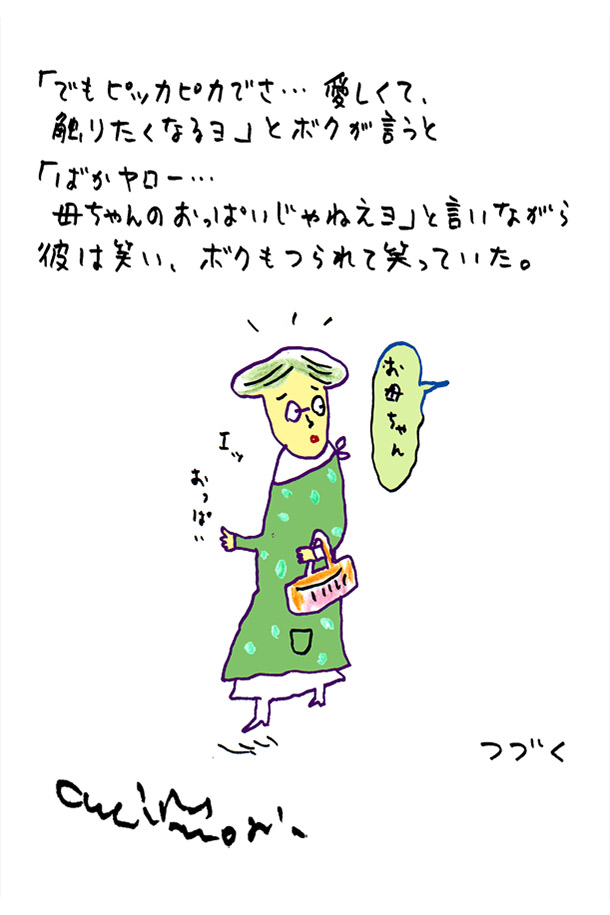 「でもピッカピカでさ… 愛しくて、
触りたくなるヨ」とボクが言うと
「ばかヤロー…
母ちゃんのおっぱいじゃねえヨ」と言いながら
彼は笑い、ボクもつられて笑っていた。
お母ちゃん
エッ
おっぱい
つづく